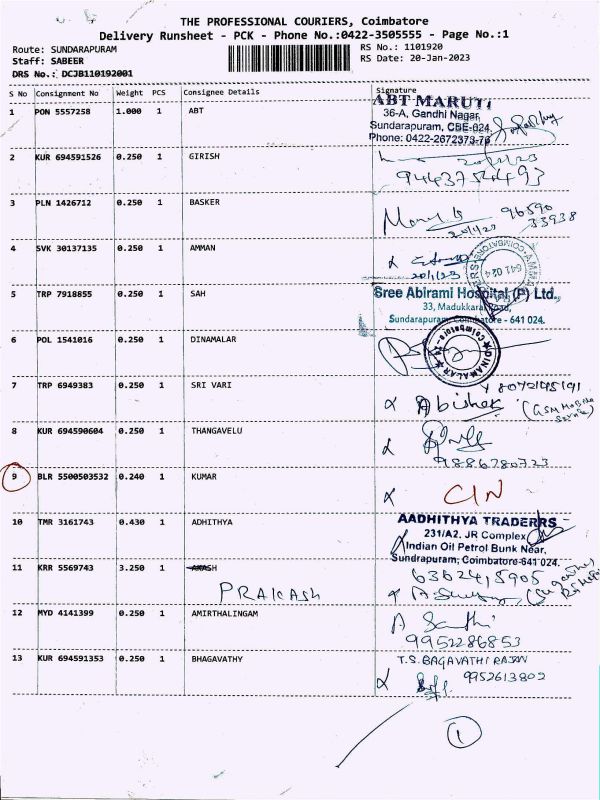 THE PROFESSIONAL COURIERS, Coimbatore
Delivery Runsheet - PCK - Phone No.:0422-3505555 - Page No.:1
Route: SUNDARAPURAM RS No.: 1101920
Staff: SABEER RS Date: 20-Jan-2023
DRS No.: DCJB110192001
S No Consignment No Weight PCS Consignee Details Signature
1 PON 5557258 1.000 1 ABT
ABT MARUTI
36-A, Gandhi Nagar,
Sundarapuram, CBE-024.
Phone: 0422-2672373-76
2 KUR 694591526 0.250 1 GIRISH
20/1/23
3 PLN 1426712 0.250 1 BASKER
96590
33938
20/1/23
4 SVK 30137135 0.250 1 AMMAN
20/1/23
641 024
5 TRP 7918855 0.250 1 SAH
Sree Abirami Hospital (P) Ltd.,
33, Madukkarai Road,
Sundarapuram, Coimbatore - 641 024.
6 POL 1541016 0.250 1 DINAMALAR
DINAMALAR
Coimbatore
7 TRP 6949383 0.250 1 SRI VARI
Abishek
8 KUR 694590604 0.250 1 THANGAVELU
9886780723
9 BLR 5500503532 0.240 1 KUMAR
CIN
10 TMR 3161743 0.430 1 ADHITHYA
AADHITHYA TRADERRS
231/A2, JR Complex
Indian Oil Petrol Bunk Near,
Sundrapuram, Coimbatore-641 024.
11 KRR 5569743 3.250 1 AKASH
PRAKASH
12 MYD 4141399 0.250 1 AMIRTHALINGAM
A Santhi
9952286853
13 KUR 694591353 0.250 1 BHAGAVATHY
T.S. BAGAVATHI RAJAN
9952613802
1